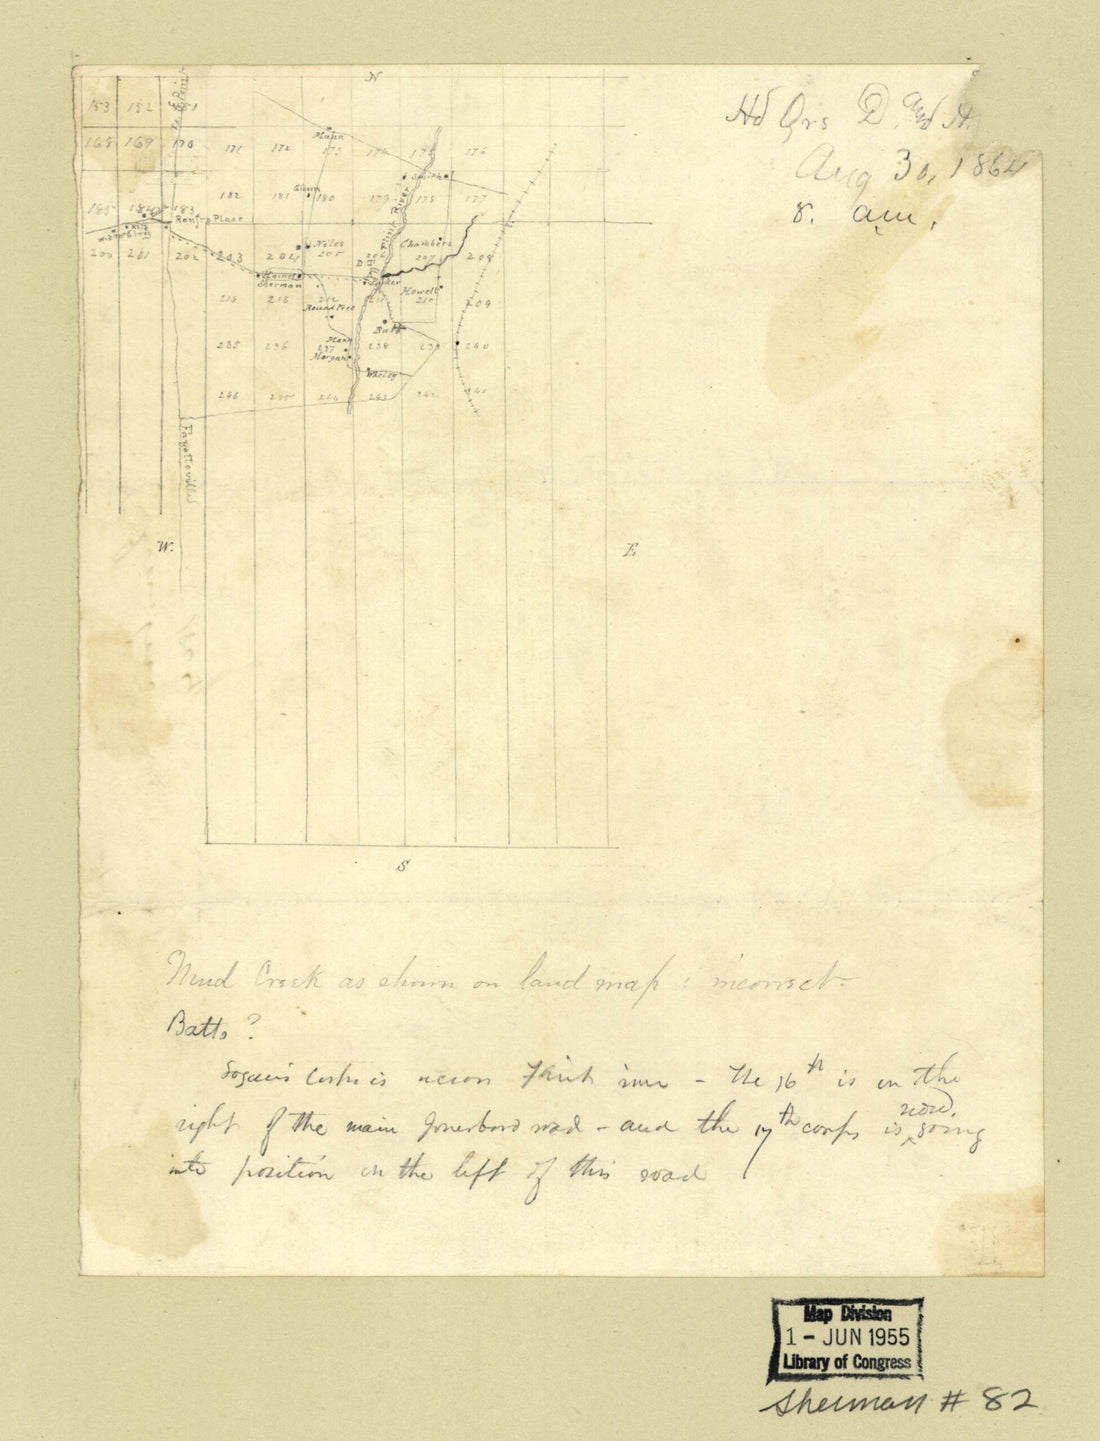 N
Hd Qrs D. and A.
Aug 30, 1864
8. am.
153 152 151
168 169 170 171 172 173 174 175 176
Mann
Smith
Glson
185 184 183 182 181 180 179 178 177
Renfro Place
Flint River
200 201 202 203 204 205 206 207 208
Niles
Chambers
Haines
Sherman
Parker
Howell
214 213 212 211 210 209
Roundtree
Batts
Mann
Morgan
235 236 237 238 239 240
Whaley
246 245 244 243 242 241
Fayetteville
W.
E
S
Mud Creek as shown on land map : incorrect.
Batts?
Logan's Corps is across Flint river - the 16th is on the
right of the main Jonesboro road - and the 17th corps is now going
into position on the left of this road
Map Division
1 - JUN 1955
Library of Congress
Sherman # 82